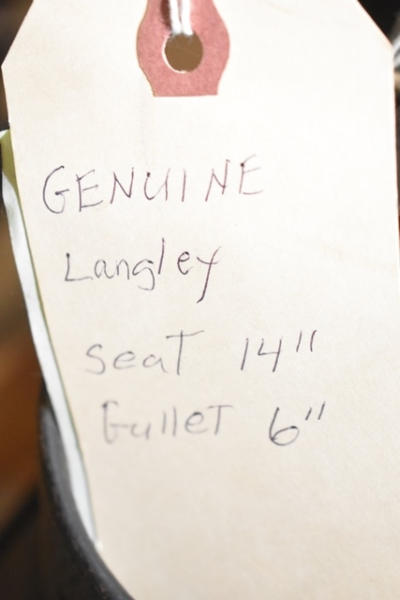 GENUINE
Langley
Seat 14"
Gullet 6"